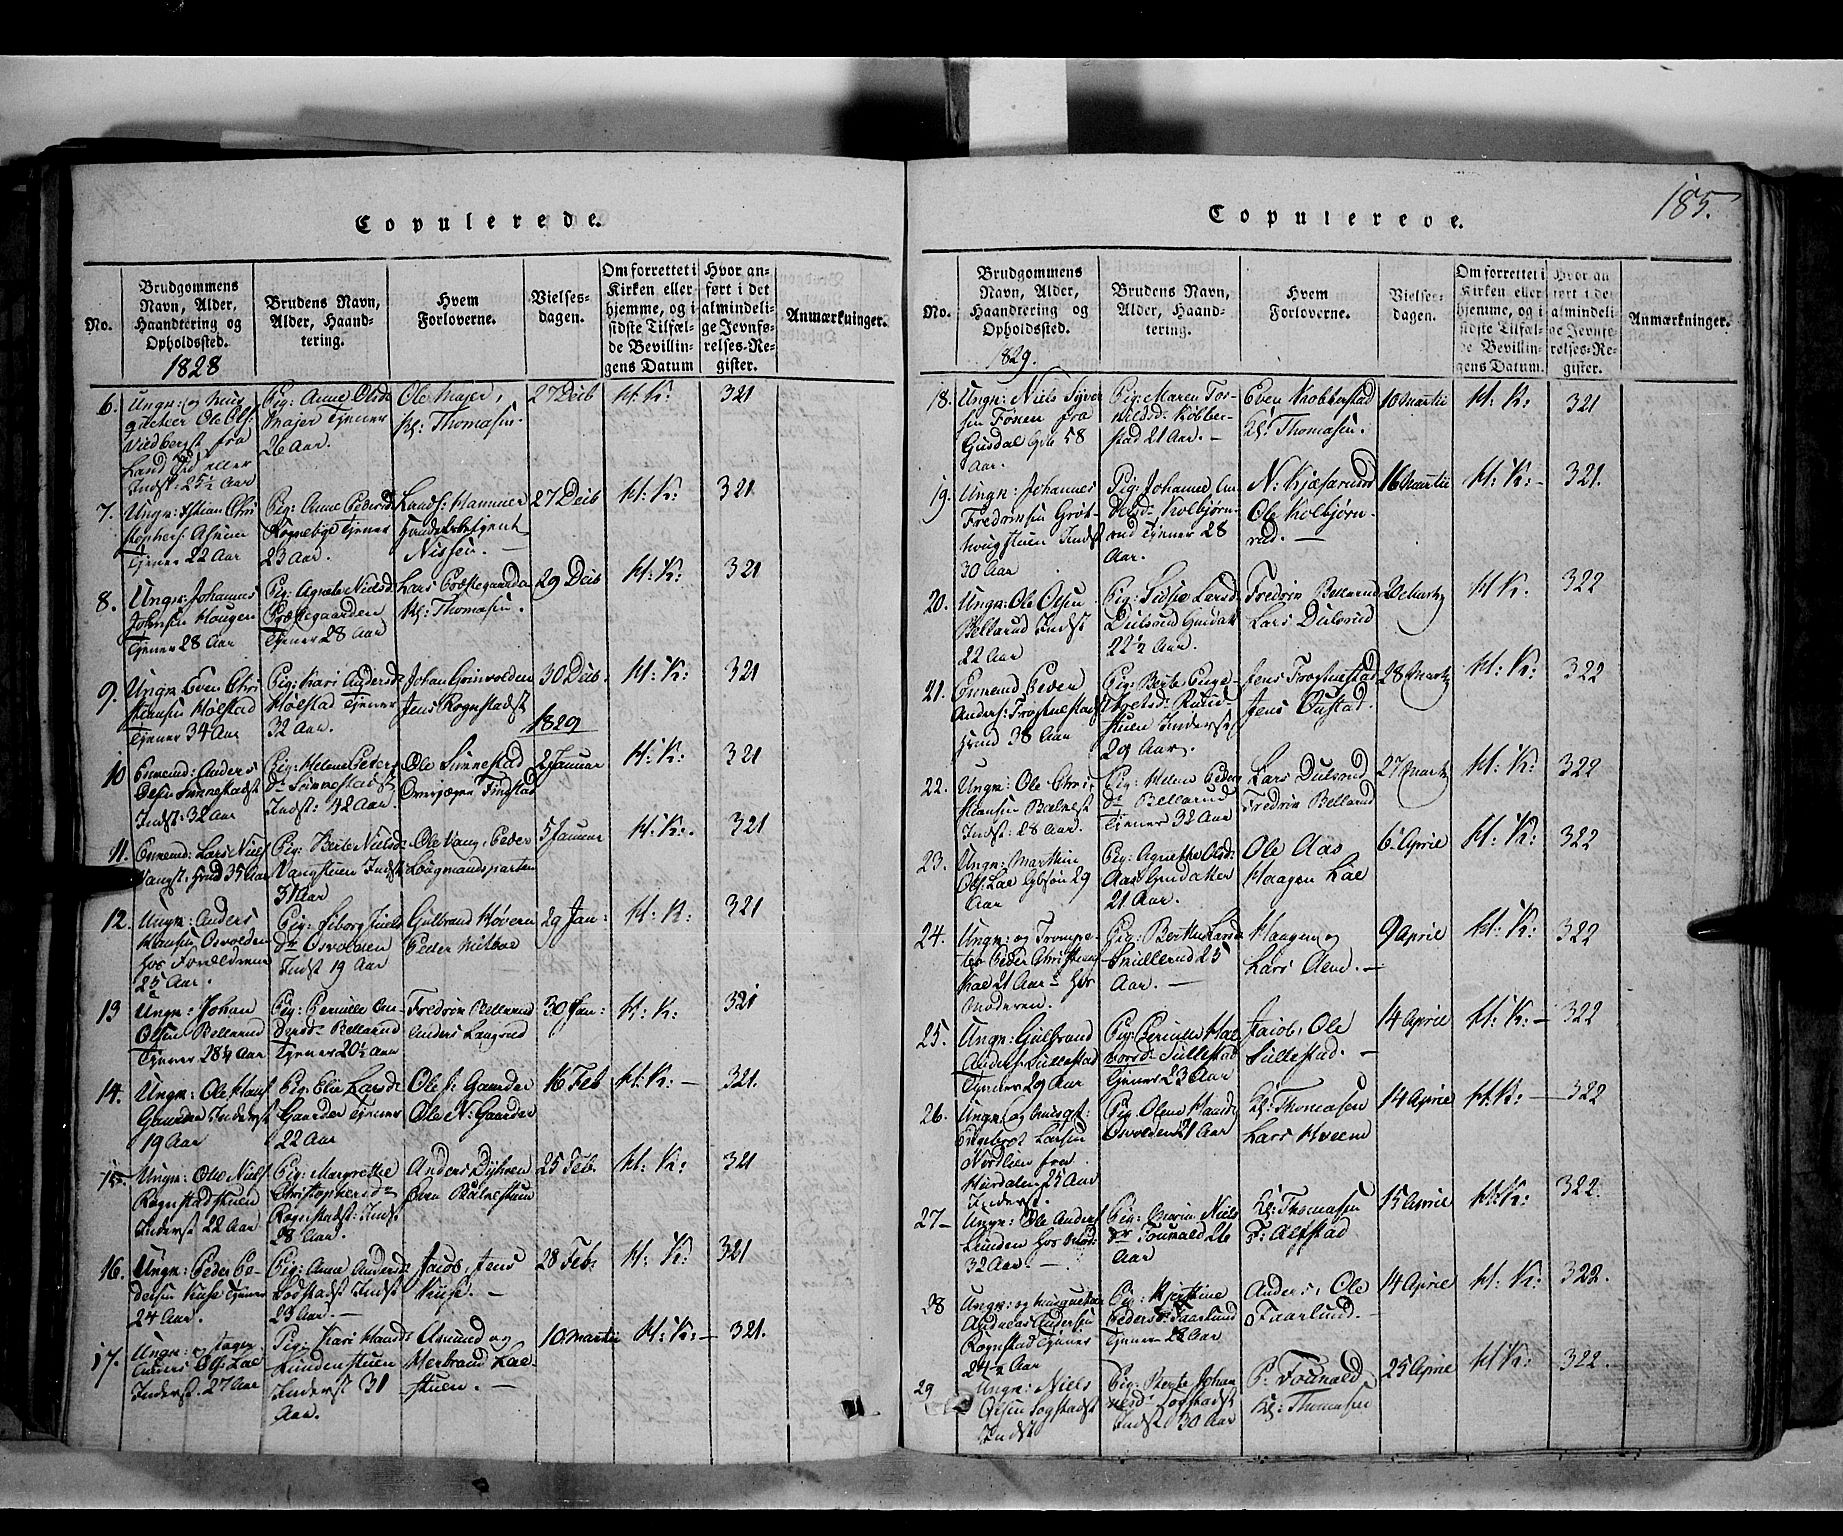 185.
Copulerede.
No.
Brudgommens
Navn, Alder,
Haandtering og
Opholdssted.
1828
Brudens Navn,
Alder, Haand-
tering.
Hvem
Forloverne.
Vielses-
dagen.
Om forrettet i
Kirken eller
hjemme, og i
sidste Tilfæl-
de Bevillin-
gens Datum
Hvor an-
ført i det
almindeli-
ge Jevnfø-
relses-Re-
gister.
Anmærkninger.
6.
Ungr: og
Ole Ols:
fra
Land
Indst: 25½ Aar
Pig: Anne Olsdr
Majer Tjener
26 Aar.
Ole Majer,
Kl: Thomasen.
27 Decb
H: K:
321
7.
Ungr: Chri
stophers:
Tjener 22 Aar
Pig: Anne Pedersd
Tjener
23 Aar.
Hammer
Nissen. —
27 Decb
H: K:
321
8.
Ungr: Johannes
Johnsen Haugen
Tjener 28 Aar
Pig: Agnete Nielsd
Præstegaarden
Tjener 28 Aar
Lars Præstegaarden
Kl: Thomasen.
29 Decb
H: K:
321
9.
Ungr: Even Chri
stiansen Holstad
Tjener 34 Aar
Pig: Kari Andersd
Holstad Tjener
32 Aar.
Johan Grinvolden
Jens Rognstadst
30 Decb.
H: K:
321
1829
10
Enkemd: Anders
Olsen Sønnestadst
Indst: 32 Aar
Pig: Helene Peders
dr Sønnestadst
Indst: 42 Aar
Ole Sønnestad
Finstad
2 Januar
H: K:
321
11.
Enkemd: Lars Niels
Vangst: Hmd 35 Aar
Pig: Berte Nielsd:
Vangstuen Indst
31 Aar
Ole Vang, Peder
Laugmandsparten
5 Januar
H: K:.
321
12.
Ungr: Anders
Hansen Osvolden
hos Forældrene
25 Aar.
Pig: Siborg Juels
dr Osvolden
Indst 19 Aar
Gulbrand Høveren
Peder
29 Jan:
H: K:
321
13
Ungr: Johan
Olsen Bellerud
Tjener 28½ Aar
Pig: Pernille An-
dersdr Bellerud
Tjener 20½ Aar
Fredrin Bellerud
Anders Laugrud
30 Jan:
H: K:
321
14.
Ungr: Ole Hans
Gaarder Inderst
19 Aar
Pig: Elie Larsdr
Gaarder Tjener
22 Aar
Ole J: Gaarder
Ole N: Gaarder
16 Feb
H: K: —
321.
15.
Ungr: Ole Niels
Rognstadstuen
Inderst 22 Aar
Pig: Margrethe
Christophersdr
Rognstadst: Inds.
28 Aar.
Anders Dyhren
Even Balnestuen
25 Feb.
H: K:
321
16.
Ungr: Peder Pe-
dersen Kuse Tjener
24 Aar.
Pig: Anne Andersd:
Bodstadst Indst
23 Aar. —
Jacob, Jens
Kuse. —
28 Feb:
H: K:
321
17.
Ungr:
Anders Ols: Lae
Inderst. 27 Aar
Pig: Kari Hansdr
Lundenstuen
Inderst 31
Aar.
Amund og
Herbrand Lae-
stuen. —
10 Martii
H: K: —
321.
Copulerede.
No.
Brudgommens
Navn, Alder,
Haandtering og
Opholdssted.
1829.
Brudens Navn,
Alder, Haand-
tering.
Hvem
Forloverne.
Vielses-
dagen.
Om forrettet i
Kirken eller
hjemme, og i
sidste Tilfæl-
de Bevillin-
gens Datum.
Hvor an
ført i det
almindeli-
ge Jevnfø-
relses-Re-
gister.
Anmærkninger.
18.
Ungr: Niels Syver
sen Fonen fra
Gusdal 58
Aar.
Pig: Maren Tor-
Kobber-
stad 21 Aar. —
Even Kobberstad
Kl: Thomasen.
10 Martii
H: K:
321
19.
Ungr: Johannes
Fredrinsen Grøt-
hougstuen Indst
30 Aar
Pig: Johanne An
Kolbjørn-
rud Tjener 28
Aar.
N: Kjæserud
Ole Kolbjørn-
rud. —
16 Martii
H: K: -
321.
20.
Ungr: Ole Olsen
Bellerud Indst
22 Aar
Pig: Sidsie Larsd:
Dulsrud
22½ Aar.
Fredrin Bellerud
Lars Dulsrud
20 Marty
H K.
322
21.
Enkemd Peder
Anders: Frøshestadst
Hmd 38 Aar
Pig: Berte Enge-
Rund-
stuen Inderst
29 Aar.
Jens Frøshestad
Jens Oustad.
28 Marty
H: K:
322
22.
Ungr: Ole Chri-
stiansen Balnest
Indst: 28 Aar.
Pig: Helene Peders
dr Bellerud
Tjener 32 Aar
Lars Dulsrud
Fredrin Bellerud
27 Marty
H: K:
322
23.
Ungr: Marthin
Ols: Lae Gbsøn 29
Aar
Pig: Agnethe Olsd:
Aas Gmdatter
21 Aar.
Ole Aas
Haagen Lae
6 Aprie
H: K:
322
24.
Ungr: og Trompe-
ter Peder Christians
21 Aar hos
Moderen.
Pig: Berthe Larsdr
Smillerud 25
Aar. —
Haagen og
Lars Alm. —
9 Aprie
H: K:
322
25.
Ungr: Gulbrand
Anders: Sullestad
Tjener 29 Aar
Pig: Pernille Hal
vorsdr Sullestad
Tjener 23 Aar
Jacob, Ole
Sullestad. —
14 Aprie
H: K: —
322
26.
Ungr: og
Engebret Larsen
Nordlien fra
Hurdalen 25 Aar
Inderst.
Pig: Olene Hansdr
Osvolden 21 Aar
Kl: Thomasen
Lars Hveem
14 Aprie
H: K: —
322
27 —
Ungr: Ole Anders
Lunden hos
32 Aar. —
Pig: Maria Niels
dr 26
Aar
Kl: Thomasen
F: Alfstad
15 Aprie
H: K:
322.
28
Ungr: og
Andreas Andersen
Rognstad Tjener
24½ Aar
Pig: Kjerstine
Pedersdr Faarlund
Tjener 24 Aar
Anders, Ole
Faarlund. —
14 Aprie
H: K:
322.
29
Ungr: Niels
Olsen Sogstadst
Indst
Pig: Marte Johan
nesdr Sogstadst
Indst 30 Aar
P.
Kl: Thomasen
25 Aprie
H K:
322.